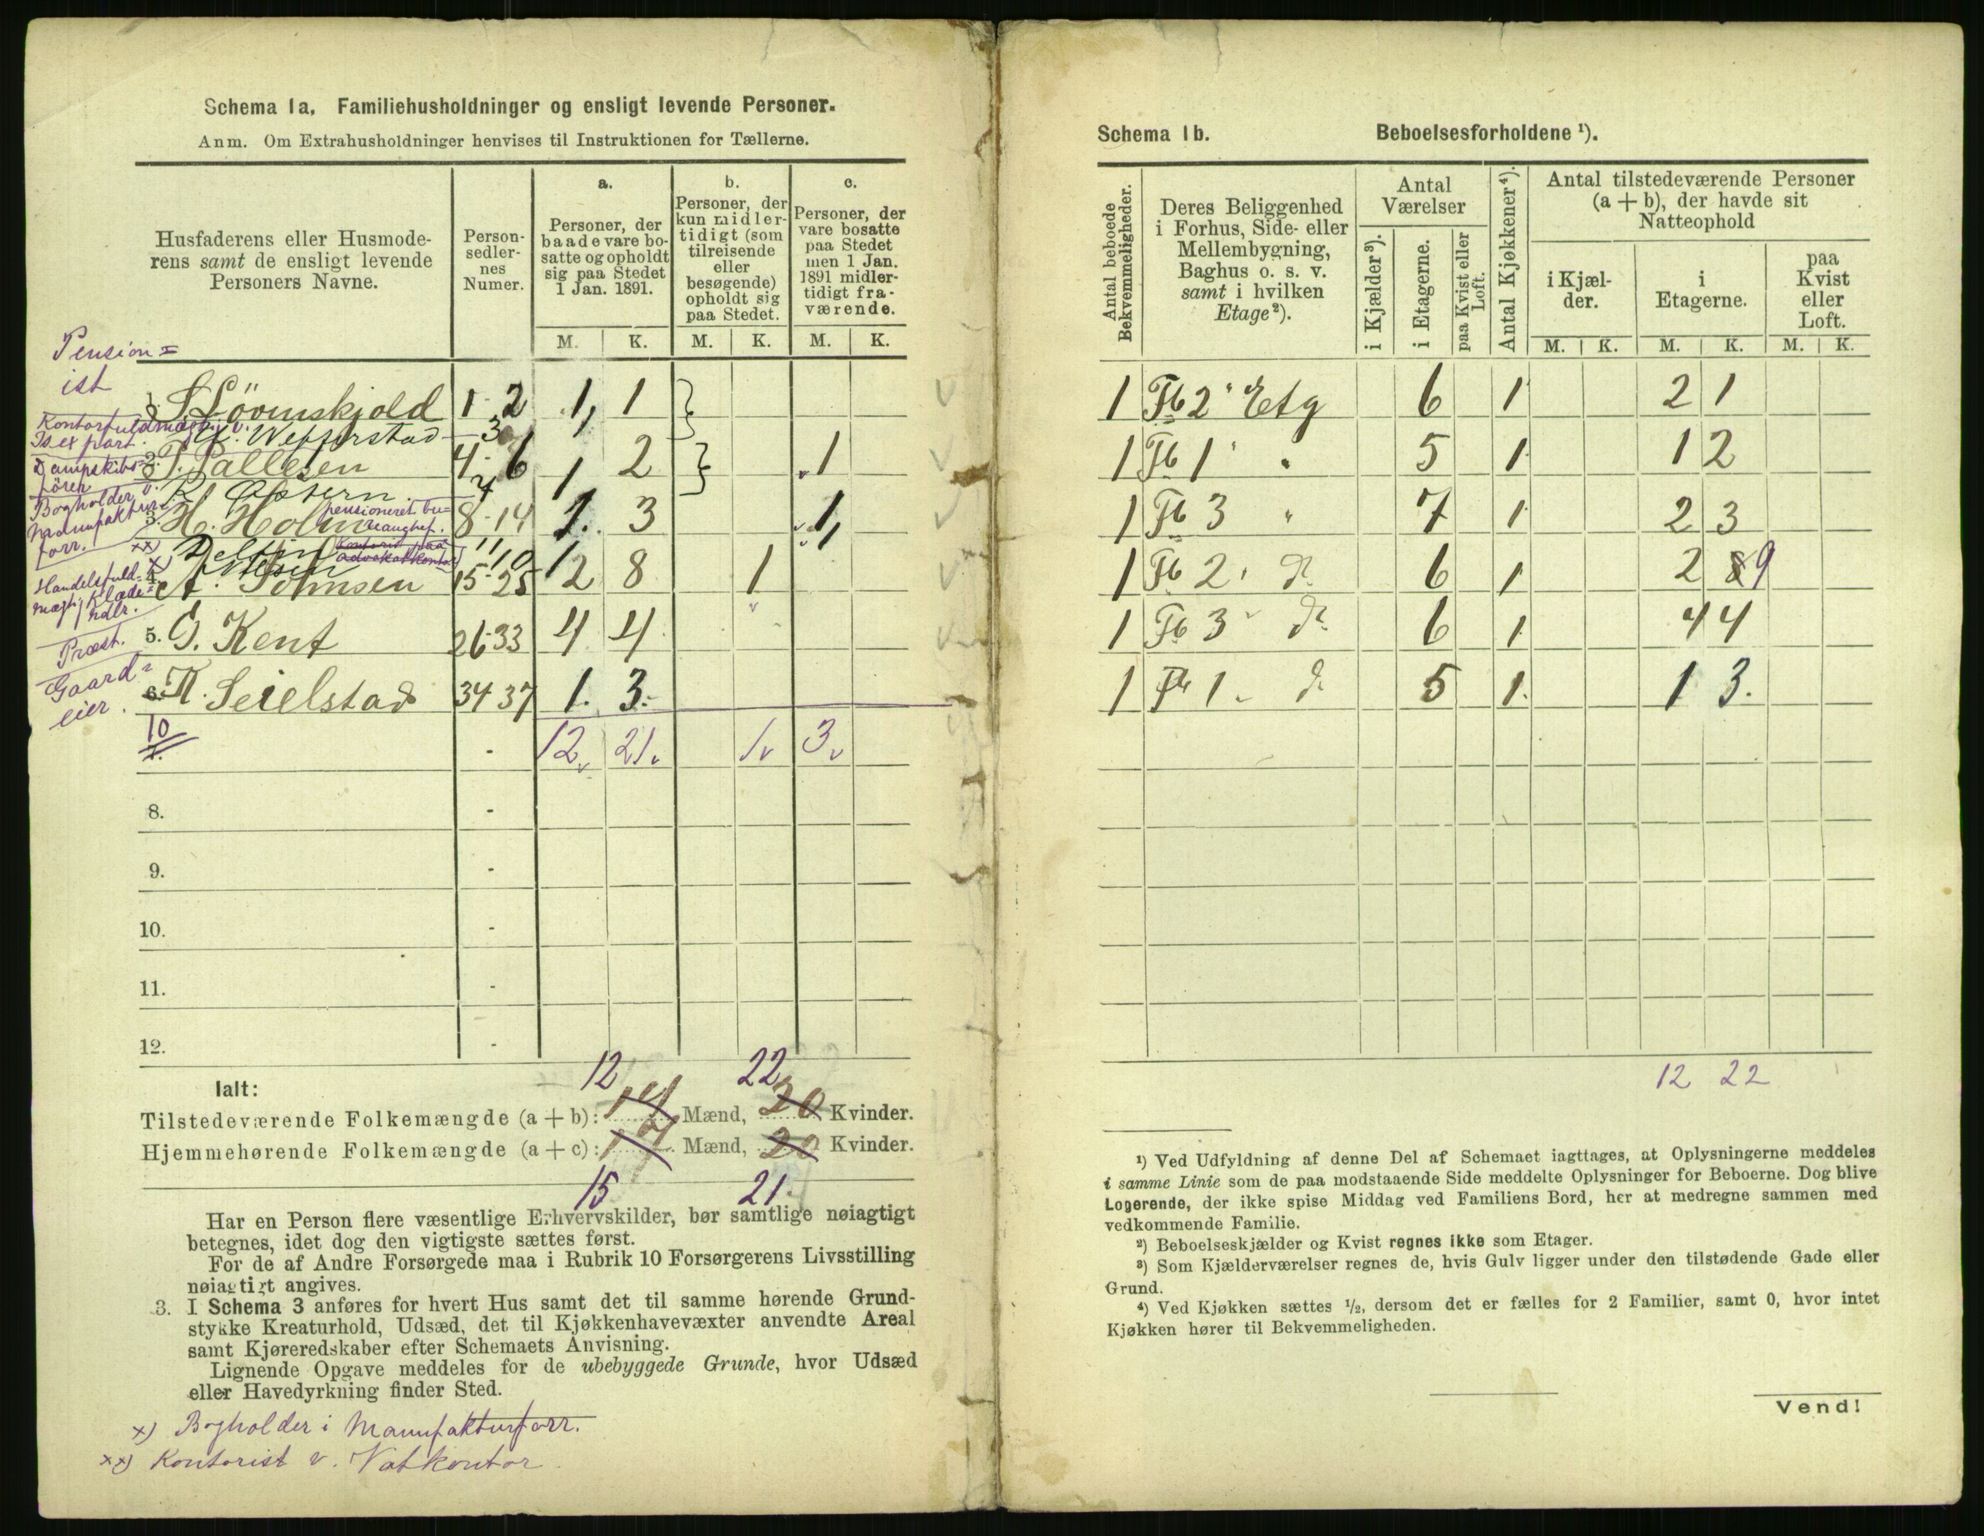 Schema 1a. Familiehusholdninger og ensligt levende Personer.
Anm. Om Extrahusholdninger henvises til Instruktionen for Tællerne.
Husfaderens eller Husmode-
rens samt de ensligt levende
Personers Navne.
Person-
sedler-
nes
Numer.
a.
Personer, der
baade vare bo-
satte og opholdt
sig paa Stedet
1 Jan. 1891.
b.
Personer, der
kun midler-
tidigt (som
tilreisende
eller
besøgende)
opholdt sig
paa Stedet.
c.
Personer, der
vare bosatte
paa Stedet
men 1 Jan.
1891 midler-
tidigt fra-
værende.
M. K. M. K. M. K.
Pension=
ist
1. S Lövenskjold 1-2 1, 1
Kontorfuldmægtig v.
Ts. exp art.
Wefferstad 3
Dampskibs=
förer
T. Pallesen 4-6 1 2 1
Bogholder v.
Manufaktur=
forr.
K. Opsern 7
3. H. Holm 8-14 1. 3 1,
pensioneret bu=
reauchef.
xx) Deltin 11
x) Nilsen 10
Kontorist paa
Advokatkontor
Handelsfuld=
mægt. i Klæde=
hdlr.
4. A. Johnsen 15-25 2 8 1
Præst. 5. G. Kent 26-33 4 4
Gaard=
eier.
6. K. Seielstad 34 37 1. 3.-
10
7. - 12 21 1 3
8. -
9. -
10. -
11. -
12. -
Ialt:
12 22
Tilstedeværende Folkemængde (a + b): 14 Mænd, 20 Kvinder.
Hjemmehørende Folkemængde (a + c): 17 Mænd, 20 Kvinder.
15 21.
Har en Person flere væsentlige Erhvervskilder, bør samtlige nøiagtigt
betegnes, idet dog den vigtigste sættes først.
For de af Andre Forsørgede maa i Rubrik 10 Forsørgerens Livsstilling
nøiagtigt angives.
3. I Schema 3 anføres for hvert Hus samt det til samme hørende Grund-
stykke Kreaturhold, Udsæd, det til Kjøkkenhavevæxter anvendte Areal
samt Kjøreredskaber efter Schemaets Anvisning.
Lignende Opgave meddeles for de ubebyggede Grunde, hvor Udsæd
eller Havedyrkning finder Sted.
x) Bogholder i Manufakturforr.
xx) Kontorist v. Vatkontor
Schema 1b. Beboelsesforholdene ¹).
Antal beboede
Bekvemmeligheder.
Deres Beliggenhed
i Forhus, Side- eller
Mellembygning,
Baghus o. s. v.
samt i hvilken
Etage²).
Antal
Værelser
i Kjælder³).
i Etagerne.
paa Kvist eller
Loft.
Antal Kjøkkener⁴).
Antal tilstedeværende Personer
(a + b), der havde sit
Natteophold
i Kjæl-
der.
i
Etagerne.
paa
Kvist
eller
Loft.
M. K. M. K. M. K.
1 Fb 2 Etg 6 1 2 1
1 Fb 1 " 5 1 1 2
1 Fb 3 " 7 1 2 3
1 Fb 2 do 6 1 2 8 9
1 Fb 3 do 6 1 4 4
1 Fb 1 do 5 1. 1 3.
12 22
¹) Ved Udfyldning af denne Del af Schemaet iagttages, at Oplysningerne meddeles
i samme Linie som de paa modstaaende Side meddelte Oplysninger for Beboerne. Dog blive
Logerende, der ikke spise Middag ved Familiens Bord, her at medregne sammen med
vedkommende Familie.
²) Beboelseskjælder og Kvist regnes ikke som Etager.
³) Som Kjælderværelser regnes de, hvis Gulv ligger under den tilstødende Gade eller
Grund.
⁴) Ved Kjøkken sættes ½, dersom det er fælles for 2 Familier, samt 0, hvor intet
Kjøkken hører til Bekvemmeligheden.
Vend!